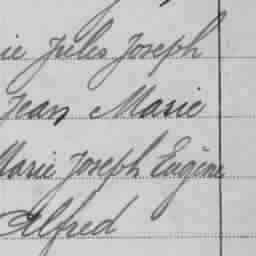 ie Jules Joseph
Jean Marie
Marie Joseph Eugène
Alfred